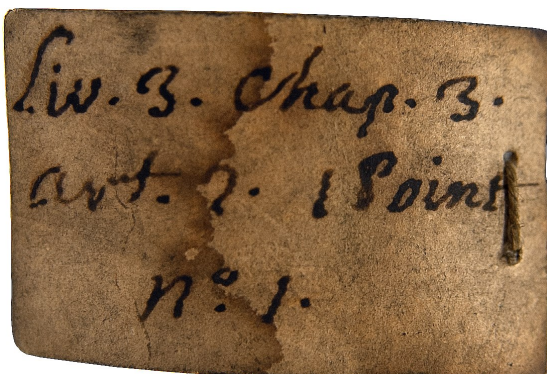 Liv. 3. Chap. 3.
art. 2. 1 Point
nº. 1.